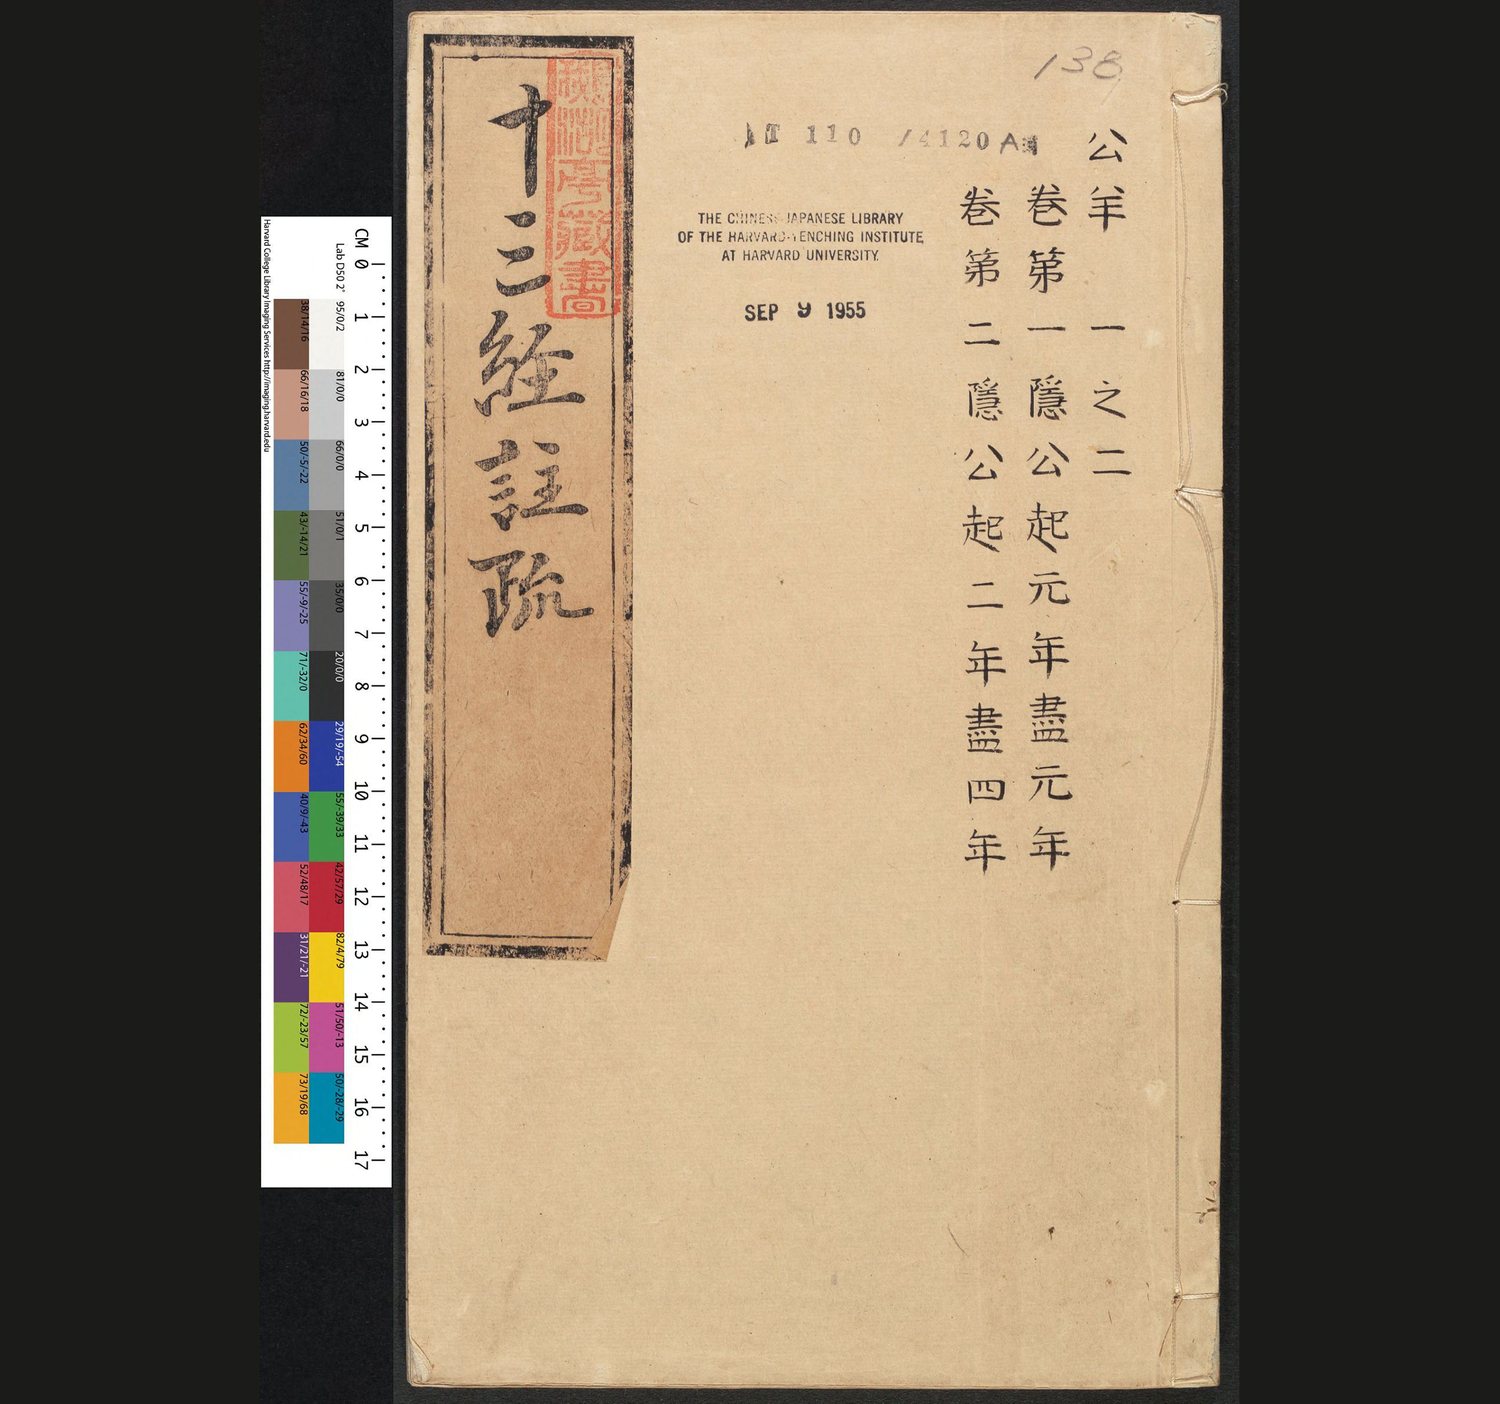 138
公羊一之二
卷第一隱公起元年盡元年
卷第二隱公起二年盡四年
T 110 /4120 A
THE CHINESE-JAPANESE LIBRARY
OF THE HARVARD-YENCHING INSTITUTE
AT HARVARD UNIVERSITY.
SEP 9 1955
十三經註疏
亭藏書
CM 0 1 2 3 4 5 6 7 8 9 10 11 12 13 14 15 16 17
Lab D50 2°
95/0/2
81/0/0
66/0/0
51/0/1
35/0/0
20/0/0
29/19/-54
55/-39/33
42/57/29
82/4/79
51/50/-13
50/-28/-29
38/14/16
66/16/18
50/-5/-22
43/-14/21
55/-9/-25
71/-32/0
62/34/60
40/9/-43
52/48/17
31/21/-21
72/-23/57
73/19/68
Harvard College Library Imaging Services http://imaging.harvard.edu